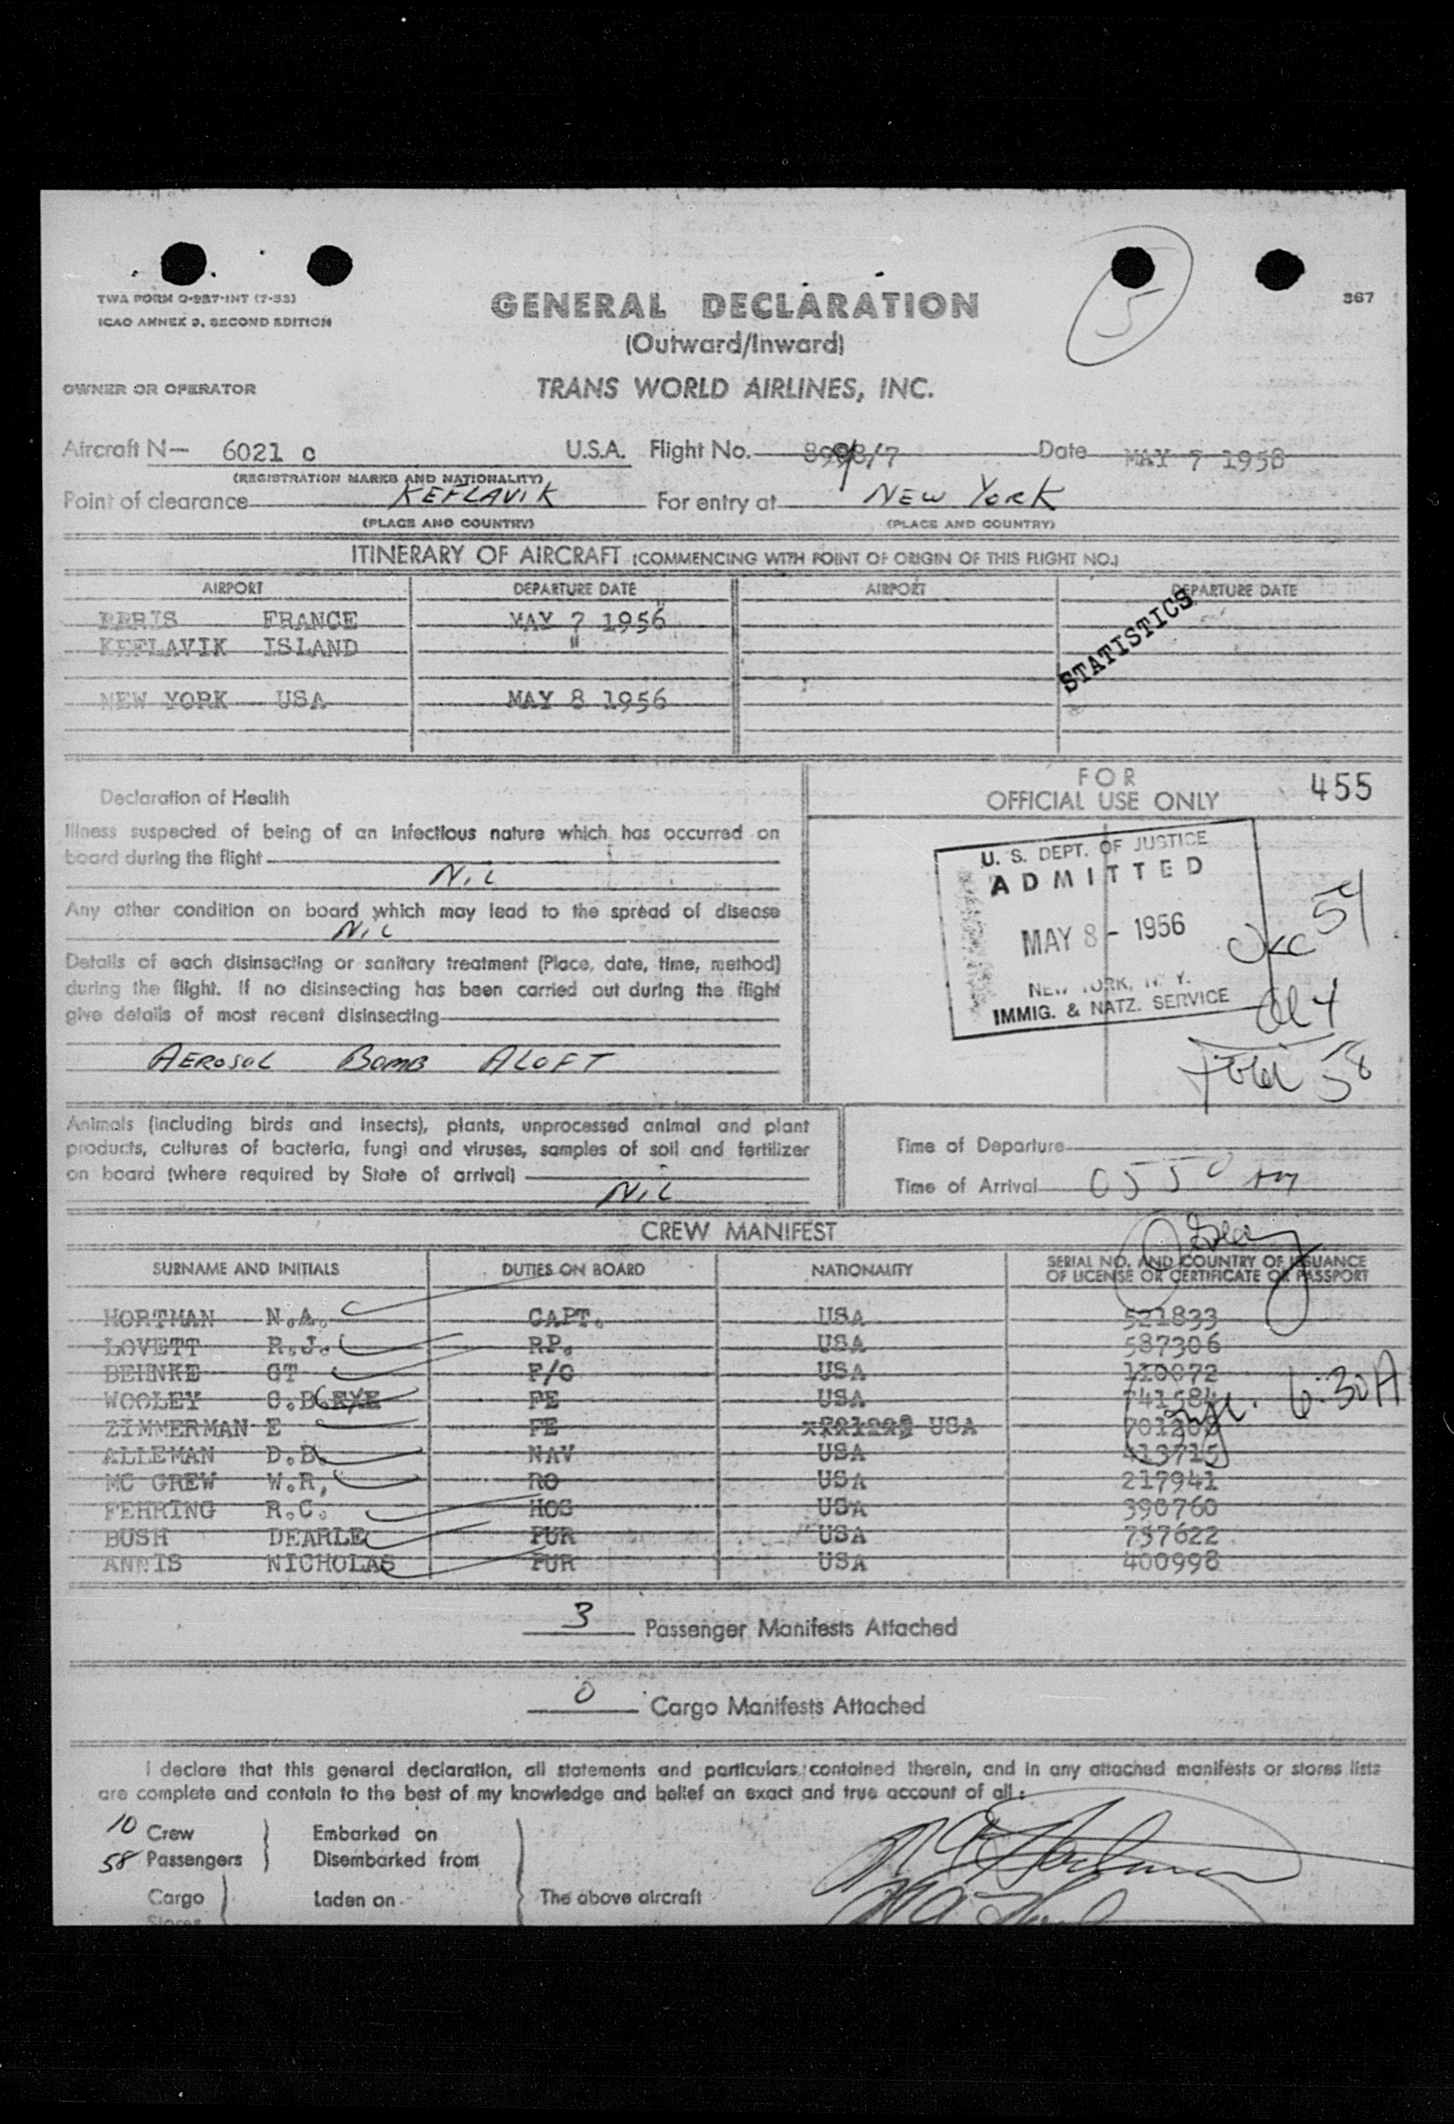 TWA FORM O-987-INT (7-53)
ICAO ANNEX 9, SECOND EDITION
GENERAL DECLARATION
(Outward/Inward)
5
367
OWNER OR OPERATOR
TRANS WORLD AIRLINES, INC.
Aircraft N— 6021 c U.S.A. Flight No. Date MAY 7 1958
(REGISTRATION MARKS AND NATIONALITY)
Point of clearance KEFLAVIK For entry at NEW YORK
(PLACE AND COUNTRY) (PLACE AND COUNTRY)
ITINERARY OF AIRCRAFT (COMMENCING WITH POINT OF ORIGIN OF THIS FLIGHT NO.)
AIRPORT DEPARTURE DATE AIRPORT DEPARTURE DATE
PPRIS FRANCE MAY 7 1956
KEFLAVIK ISLAND "
STATISTICS
NEW YORK USA MAY 8 1956
Declaration of Health
Illness suspected of being of an infectious nature which has occurred on
board during the flight
NIL
Any other condition on board which may lead to the spread of disease
NIL
Details of each disinsecting or sanitary treatment (Place, date, time, method)
during the flight. If no disinsecting has been carried out during the flight
give details of most recent disinsecting
AEROSOL BOMB ALOFT
FOR
OFFICIAL USE ONLY
455
U. S. DEPT. OF JUSTICE
ADMITTED
MAY 8 - 1956
NEW YORK, N. Y.
IMMIG. & NATZ. SERVICE
USC 54
Al 4
Total 58
Animals (including birds and insects), plants, unprocessed animal and plant
products, cultures of bacteria, fungi and viruses, samples of soil and fertilizer
on board (where required by State of arrival)
NIL
Time of Departure
Time of Arrival 0550 AM
CREW MANIFEST
SURNAME AND INITIALS DUTIES ON BOARD NATIONALITY SERIAL NO. AND COUNTRY OF ISSUANCE
OF LICENSE OR CERTIFICATE OR PASSPORT
HORTMAN N.A. CAPT. USA 521833
LOVETT R.J. RP. USA 587306
BEHNKE GT F/O USA 110872
WOOLEY C.B. FE USA 741584
ZIMMERMAN E FE USA
6:30A
ALLEMAN D.B. NAV USA 413715
MC GREW W.R, RO USA 217941
FEHRING R.C. HOS USA 390760
BUSH DEARLE PUR USA 757622
ANNIS NICHOLAS PUR USA 400998
3 Passenger Manifests Attached
0 Cargo Manifests Attached
I declare that this general declaration, all statements and particulars contained therein, and in any attached manifests or stores lists
are complete and contain to the best of my knowledge and belief an exact and true account of all:
10 Crew } Embarked on
58 Passengers } Disembarked from
Cargo } Laden on } The above aircraft
Stores